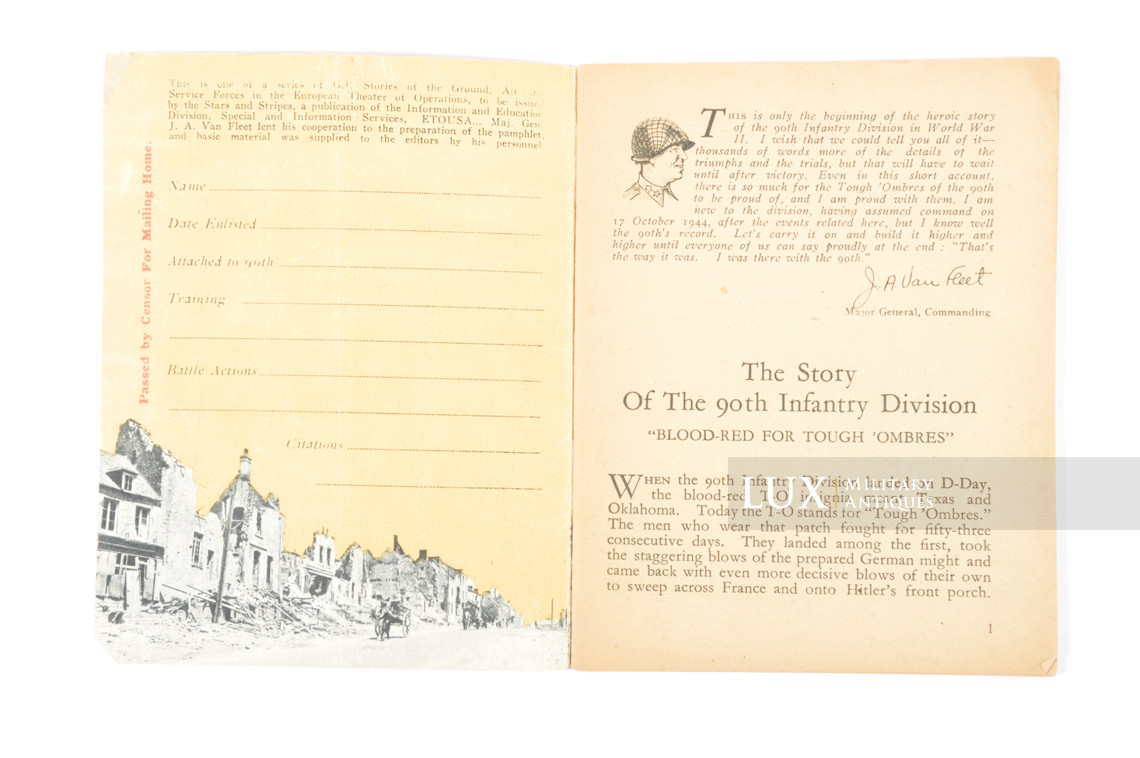 This is one of a series of G.I. Stories of the Ground, Air
Service Forces in the European Theater of Operations, to be issue
by the Stars and Stripes, a publication of the Information and Education
Division, Special and Information Services, ETOUSA... Maj. Gen.
J. A. Van Fleet lent his cooperation to the preparation of the pamphlet,
and basic material was supplied to the editors by his personnel
Passed by Censor For Mailing Home.
Name
Date Enlisted
Attached to 90th
Training
Battle Actions
Citations
THIS is only the beginning of the heroic story
of the 90th Infantry Division in World War
II. I wish that we could tell you all of it—
thousands of words more of the details of the
triumphs and the trials, but that will have to wait
until after victory. Even in this short account,
there is so much for the Tough 'Ombres of the 90th
to be proud of, and I am proud with them. I am
new to the division, having assumed command on
17 October 1944, after the events related here, but I know well
the 90th's record. Let's carry it on and build it higher and
higher until everyone of us can say proudly at the end : "That's
the way it was. I was there with the 90th."
J. A Van Fleet
Major General, Commanding
The Story
Of The 90th Infantry Division
"BLOOD-RED FOR TOUGH 'OMBRES"
WHEN the 90th Infantry Division landed on D-Day,
the blood-red T-O insignia meant Texas and
Oklahoma. Today the T-O stands for "Tough 'Ombres."
The men who wear that patch fought for fifty-three
consecutive days. They landed among the first, took
the staggering blows of the prepared German might and
came back with even more decisive blows of their own
to sweep across France and onto Hitler's front porch.
1
LUX MILITARY
ANTIQUES